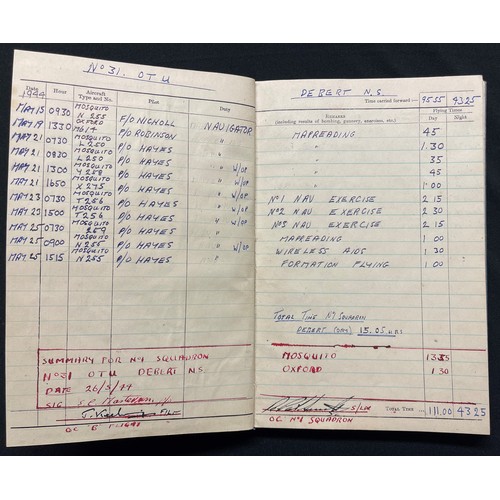 No 31. OTU
Date Hour Aircraft Type and No. Pilot Duty
1944
MAY 15 0930 MOSQUITO N 255 F/O NICHOLL NAVIGATOR
MAY 19 1330 OXFORD MG14 P/O ROBINSON "
MAY 21 0730 MOSQUITO L 250 P/O HAYES "
MAY 21 0830 MOSQUITO L 250 P/O HAYES " W/OP
MAY 21 1300 MOSQUITO Y 258 P/O HAYES " W/OP
MAY 21 1650 MOSQUITO X 275 P/O HAYES " W/OP
MAY 23 0730 MOSQUITO T 256 P/O HAYES "
MAY 23 1500 MOSQUITO T 256 P/O HAYES " W/OP
MAY 25 0730 MOSQUITO 259 P/O HAYES "
MAY 25 0900 MOSQUITO N 255 P/O HAYES " W/OP
MAY 25 1515 N 255 P/O HAYES "
SUMMARY FOR No1 SQUADRON
No31 OTU DEBERT N.S.
DATE 26/5/44
SIG
F/LT
OC B FLIGHT
DEBERT N.S.
Time carried forward:— 95.55 43.25
REMARKS
(including results of bombing, gunnery, exercises, etc.)
Flying Times
Day Night
MAPREADING 45
" 1.30
" 35
" 45
" 1.00
No1 NAV EXERCISE 2 15
No2 NAV EXERCISE 2 30
No3 NAV EXERCISE 2 15
MAPREADING 1 00
WIRELESS AIDS 1 30
FORMATION FLYING 1 00
TOTAL TIME No1 SQUADRON
DEBERT (DAY) 15.05 HRS
MOSQUITO 13 35
OXFORD 1 30
S/LDR
OC No1 SQUADRON
TOTAL TIME 111.00 43 25